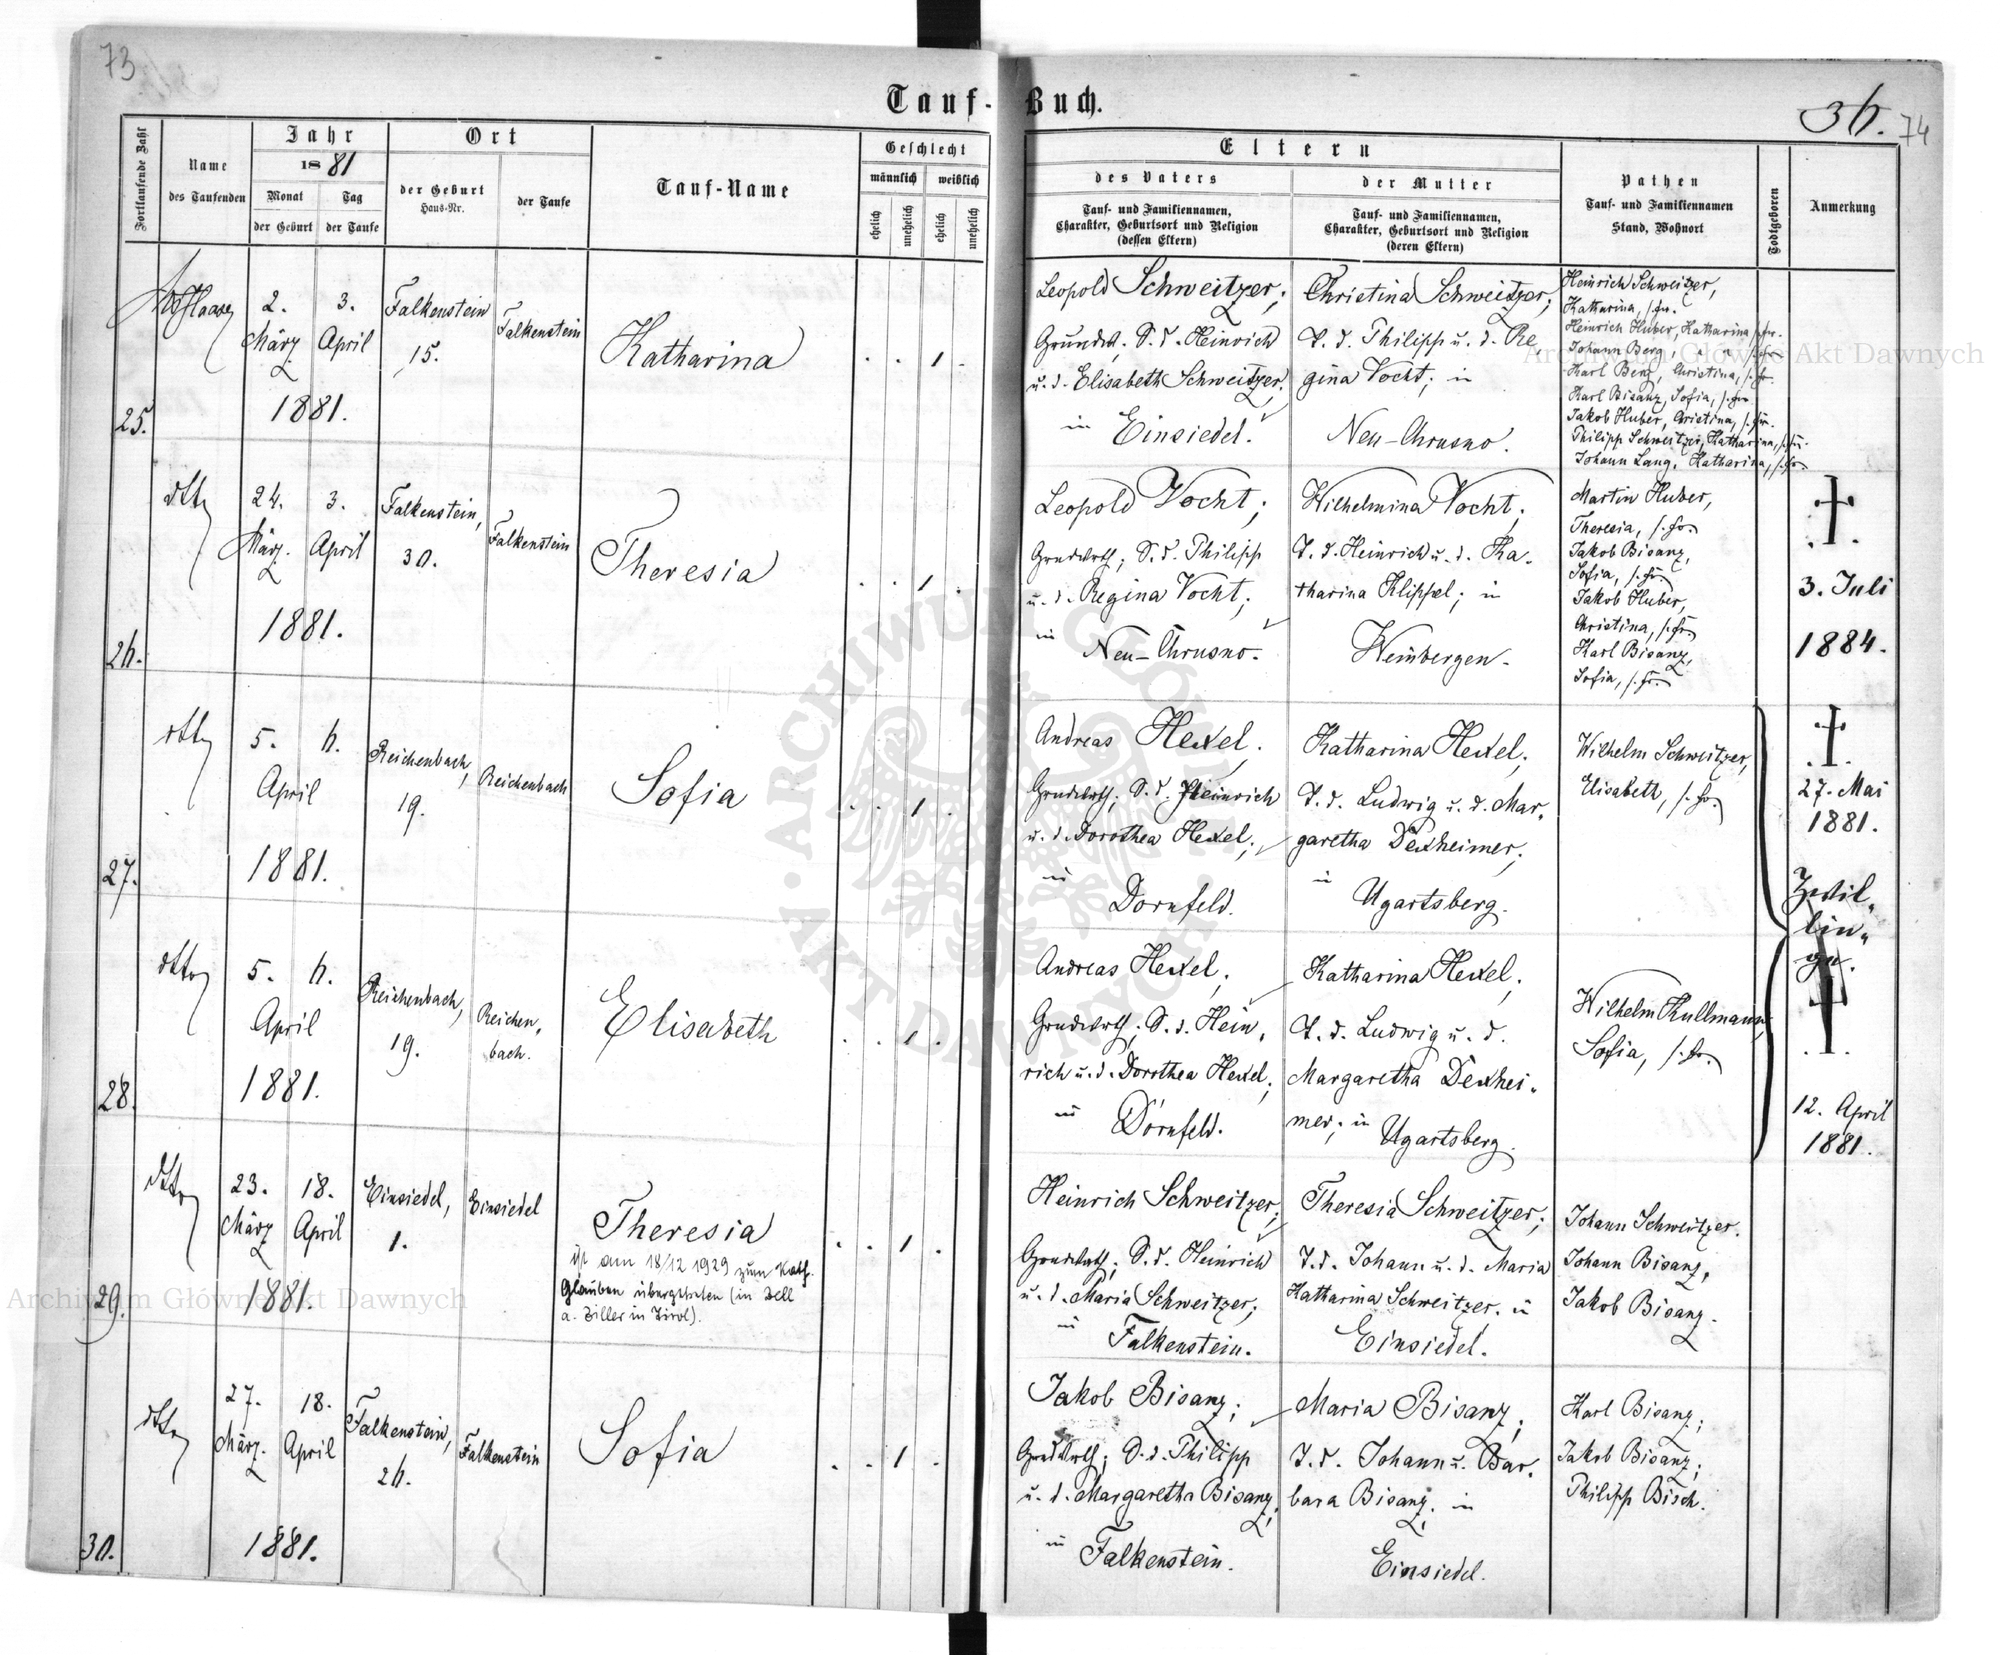 73
Tauf-Buch.
36. 74
Fortlaufende Zahl
Name
des Taufenden
Jahr
1881
Monat
der Geburt
Tag
der Taufe
Ort
der Geburt
Haus-Nr.
der Taufe
Tauf-Name
Geschlecht
männlich
weiblich
ehelich
unehelich
ehelich
unehelich
Eltern
des Vaters
Tauf- und Familiennamen,
Charakter, Geburtsort und Religion
(dessen Eltern)
der Mutter
Tauf- und Familiennamen,
Charakter, Geburtsort und Religion
(deren Eltern)
Pathen
Tauf- und Familiennamen
Stand, Wohnort
Todtgeboren
Anmerkung
25.
2.
März
3.
April
1881.
Falkenstein
15.
Falkenstein
Katharina
Leopold Schweitzer;
S. d. Heinrich
u. d. Elisabeth Schweitzer;
in Einsiedel.
Christina Schweitzer;
T. d. Philipp u. d. Re
gina Vocht; in
Neu-Chrusno.
Heinrich Schweitzer,
Katharina, s. Fr.
Heinrich Huber, Katharina s. Fr.
Johann Berg, " s. Fr.
Karl Berg, Christina, s. Fr.
Karl Bisanz, Sofia, s. Fr.
Jakob Huber, Christina, s. Fr.
Philipp Schweitzer, Katharina, s. Fr.
Johann Lang, Katharina, s. Fr.
26.
dtto
24.
März.
3.
April
1881.
Falkenstein,
30.
Falkenstein
Theresia
Leopold Vocht;
Grundwrth; S. d. Philipp
u. d. Regina Vocht;
in Neu-Chrusno.
Wilhelmina Vocht;
T. d. Heinrich u. d. Ka-
tharina Klippel; in
Weinbergen.
Martin Huber,
Theresia, s. Fr.
Jakob Bisanz,
Sofia, s. Fr.
Jakob Huber,
Christina, s. Fr.
Karl Bisanz,
Sofia, s. Fr.
3. Juli
1884.
27.
dtto
5.
6.
April
1881.
Reichenbach,
19.
Reichenbach
Sofia
Andreas Hexel;
Grundwrth; S. d. Heinrich
u. d. Dorothea Hexel;
in
Dornfeld.
Katharina Hexel;
T. d. Ludwig u. d. Mar-
garetha Dexheimer;
in Ugartsberg.
Wilhelm Schweitzer,
Elisabeth, s. Fr.
27. Mai
1881.
Zwil-
lin-
ge.
28.
dtto
5.
6.
April
1881.
Reichenbach,
19.
Reichen-
bach.
Elisabeth
Andreas Hexel;
Grundwrth; S. d. Hein-
rich u. d. Dorothea Hexel;
in Dornfeld.
Katharina Hexel;
T. d. Ludwig u. d.
Margaretha Dexhei-
mer; in Ugartsberg.
Wilhelm Kullmann,
Sofia, s. Fr.
12. April
1881.
29.
dtto
23.
März
18.
April
1881.
Einsiedel,
1.
Einsiedel
Theresia
ist am 18/12 1929 zum Kath.
Glauben übergetreten (in Zell
a. Ziller in Tirol).
Heinrich Schweitzer;
Grundwrth; S. d. Heinrich
u. d. Maria Schweitzer;
in
Falkenstein.
Theresia Schweitzer;
T. d. Johann u. d. Maria
Katharina Schweitzer; in
Einsiedel.
Johann Schweitzer.
Johann Bisanz,
Jakob Bisanz.
30.
dtto
27.
März.
18.
April
1881.
Falkenstein,
26.
Falkenstein
Sofia
Jakob Bisanz;
Grundwrth; S. d. Philipp
u. d. Margaretha Bisanz;
in Falkenstein.
Maria Bisanz;
T. d. Johann u. Bar-
bara Bisanz; in
Einsiedel.
Karl Bisanz;
Jakob Bisanz;
Philipp Bisch.
Archiwum Główne Akt Dawnych
Archiwum Główne Akt Dawnych
ARCHIWUM GŁÓWNE AKT DAWNYCH